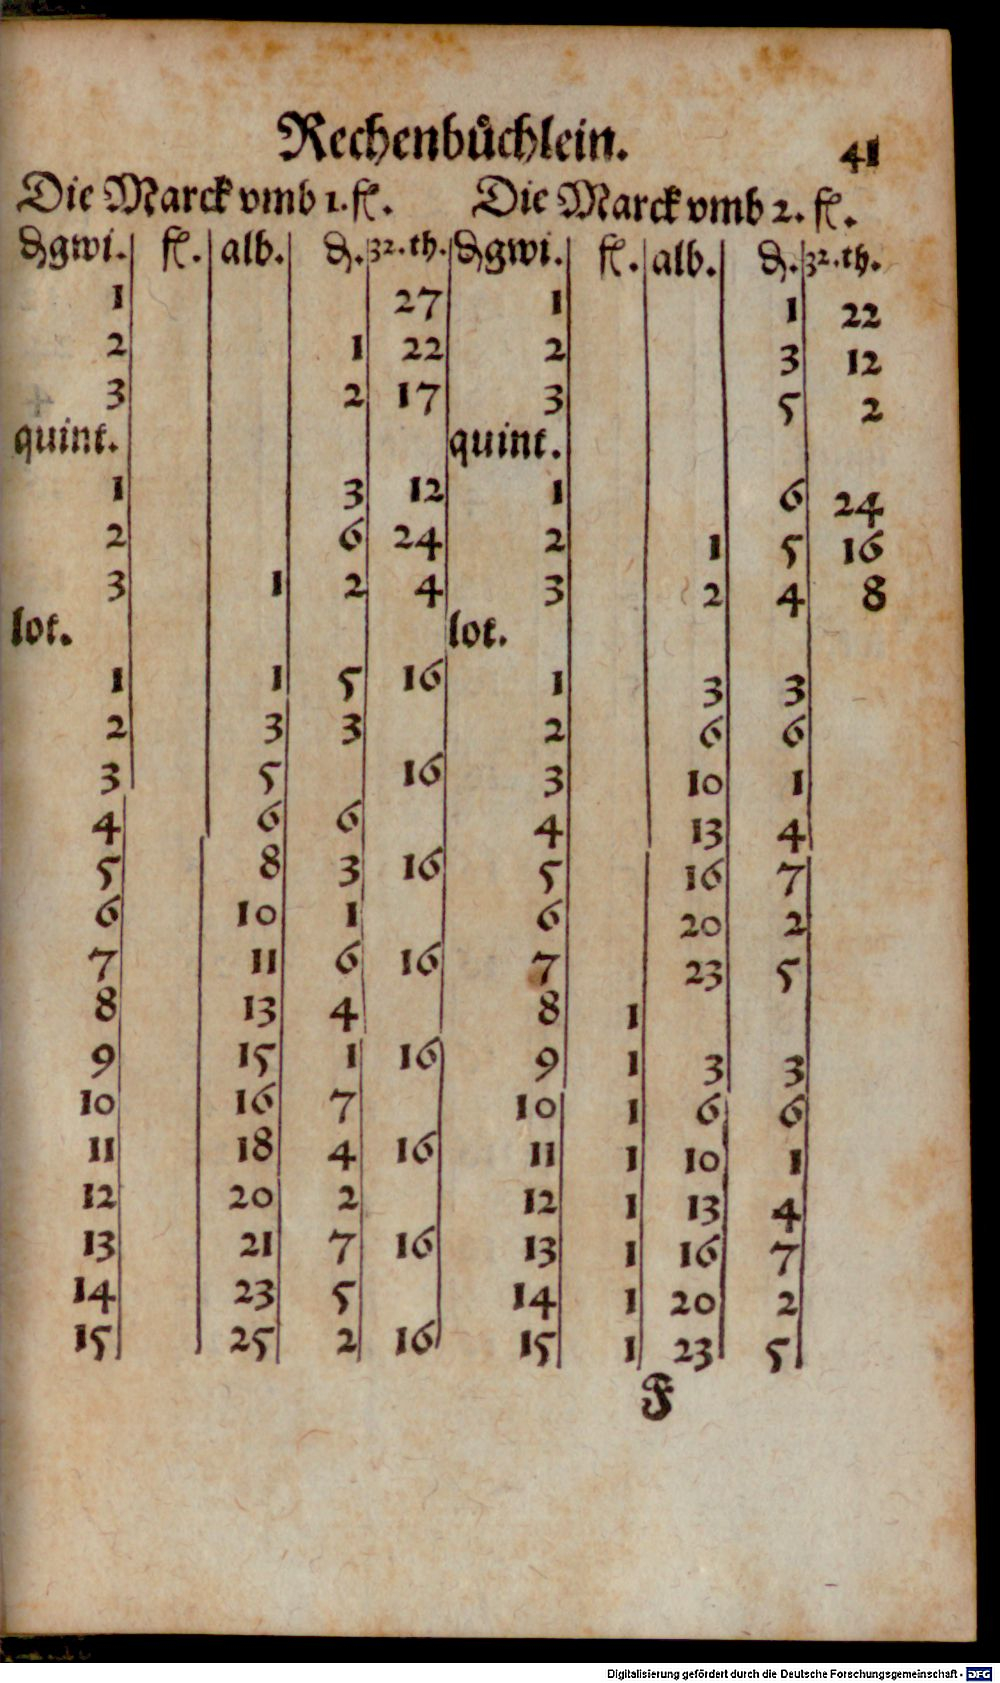 Rechenbůchlein. 41
Die Marck vmb 1. fl. Die Marck vmb 2. fl.
₰gwi. fl. alb. ₰. 32.th. ₰gwi. fl. alb. ₰. 32.th.
1 27 1 1 22
2 1 22 2 3 12
3 2 17 3 5 2
quint. quint.
1 3 12 1 6 24
2 6 24 2 1 5 16
3 1 2 4 3 2 4 8
lot. lot.
1 1 5 16 1 3 3
2 3 3 2 6 6
3 5 16 3 10 1
4 6 6 4 13 4
5 8 3 16 5 16 7
6 10 1 6 20 2
7 11 6 16 7 23 5
8 13 4 8 1
9 15 1 16 9 1 3 3
10 16 7 10 1 6 6
11 18 4 16 11 1 10 1
12 20 2 12 1 13 4
13 21 7 16 13 1 16 7
14 23 5 14 1 20 2
15 25 2 16 15 1 23 5
F
Digitalisierung gefördert durch die Deutsche Forschungsgemeinschaft - DFG